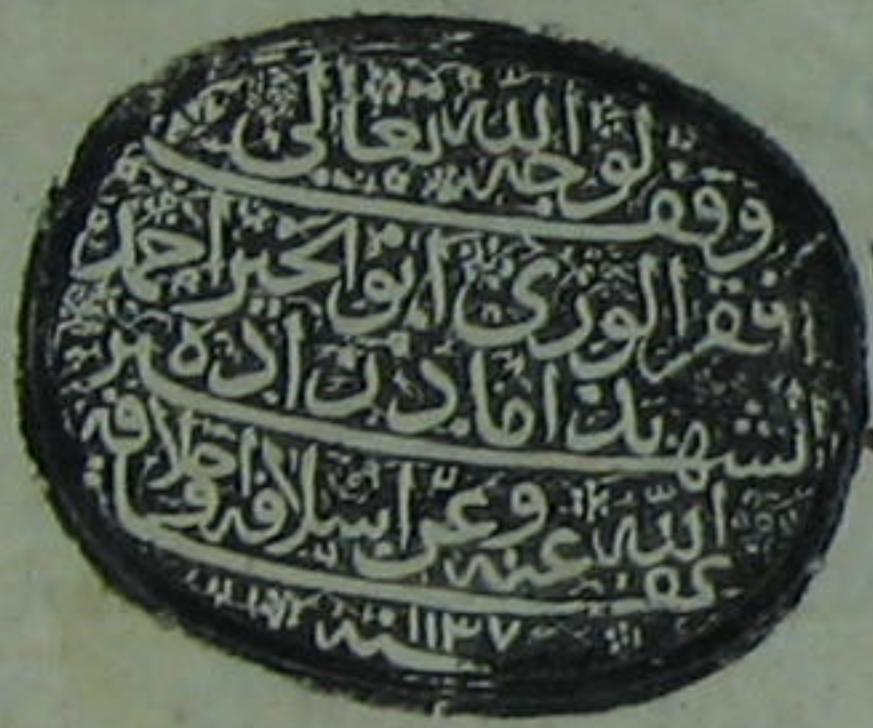 وقف لوجه الله تعالى
افقر الورى ابو الخير احمد
الشهير بدامادزاده
عفا الله عنه وعن اسلافه واخلافه
سنه ١١٣٧